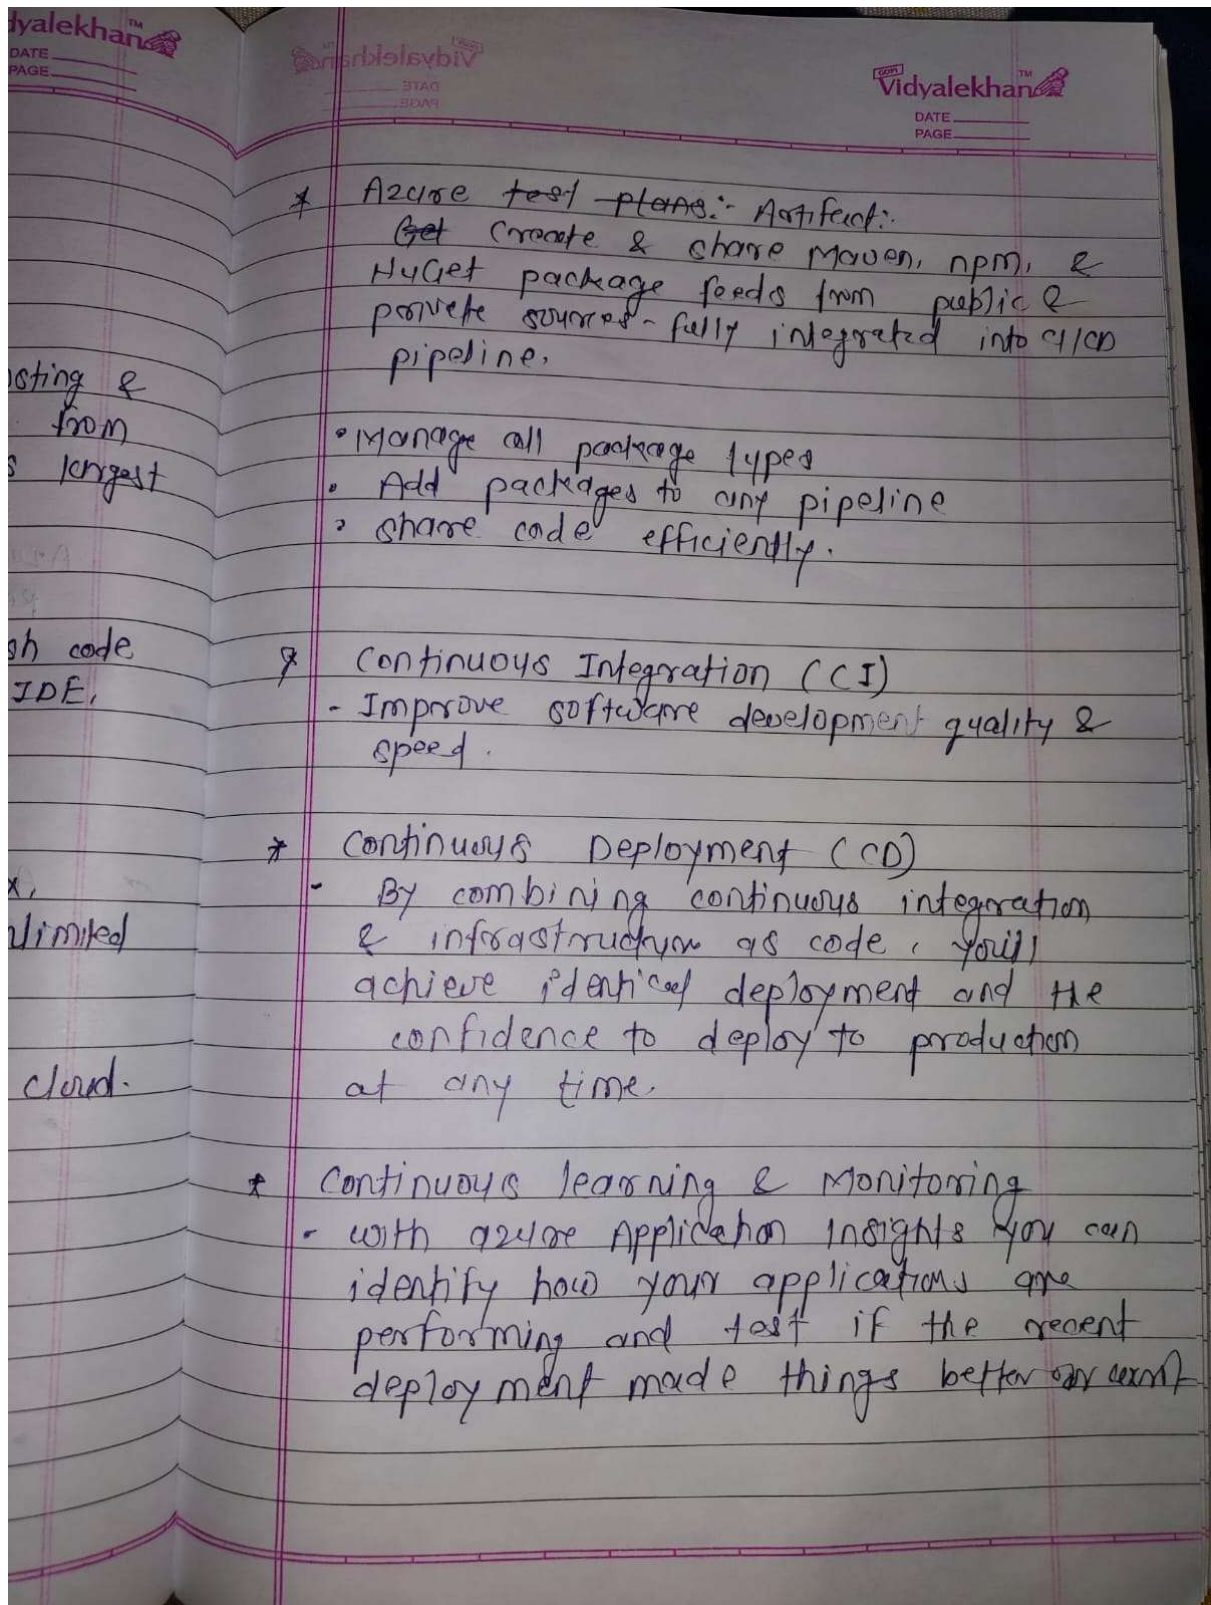 dyalekhan™
DATE
PAGE
sting &
from
s largest
sh code
IDE,
x,
limited
cloud.
GOPI
Vidyalekhan™
DATE
PAGE
* Azure test plans:- Artifact:-
Get Create & share Maven, npm, &
NuGet package feeds from public &
private sources - fully integrated into CI/CD
pipeline.
• Manage all package types
• Add packages to any pipeline
• share code efficiently.
* Continuous Integration (CI)
- Improve software development quality &
speed.
* Continuous Deployment (CD)
- By combining continuous integration
& infrastructure as code, you'll
achieve identical deployment and the
confidence to deploy to production
at any time.
* Continuous learning & Monitoring
- with azure Application Insights you can
identify how your applications are
performing and test if the recent
deployment made things better or